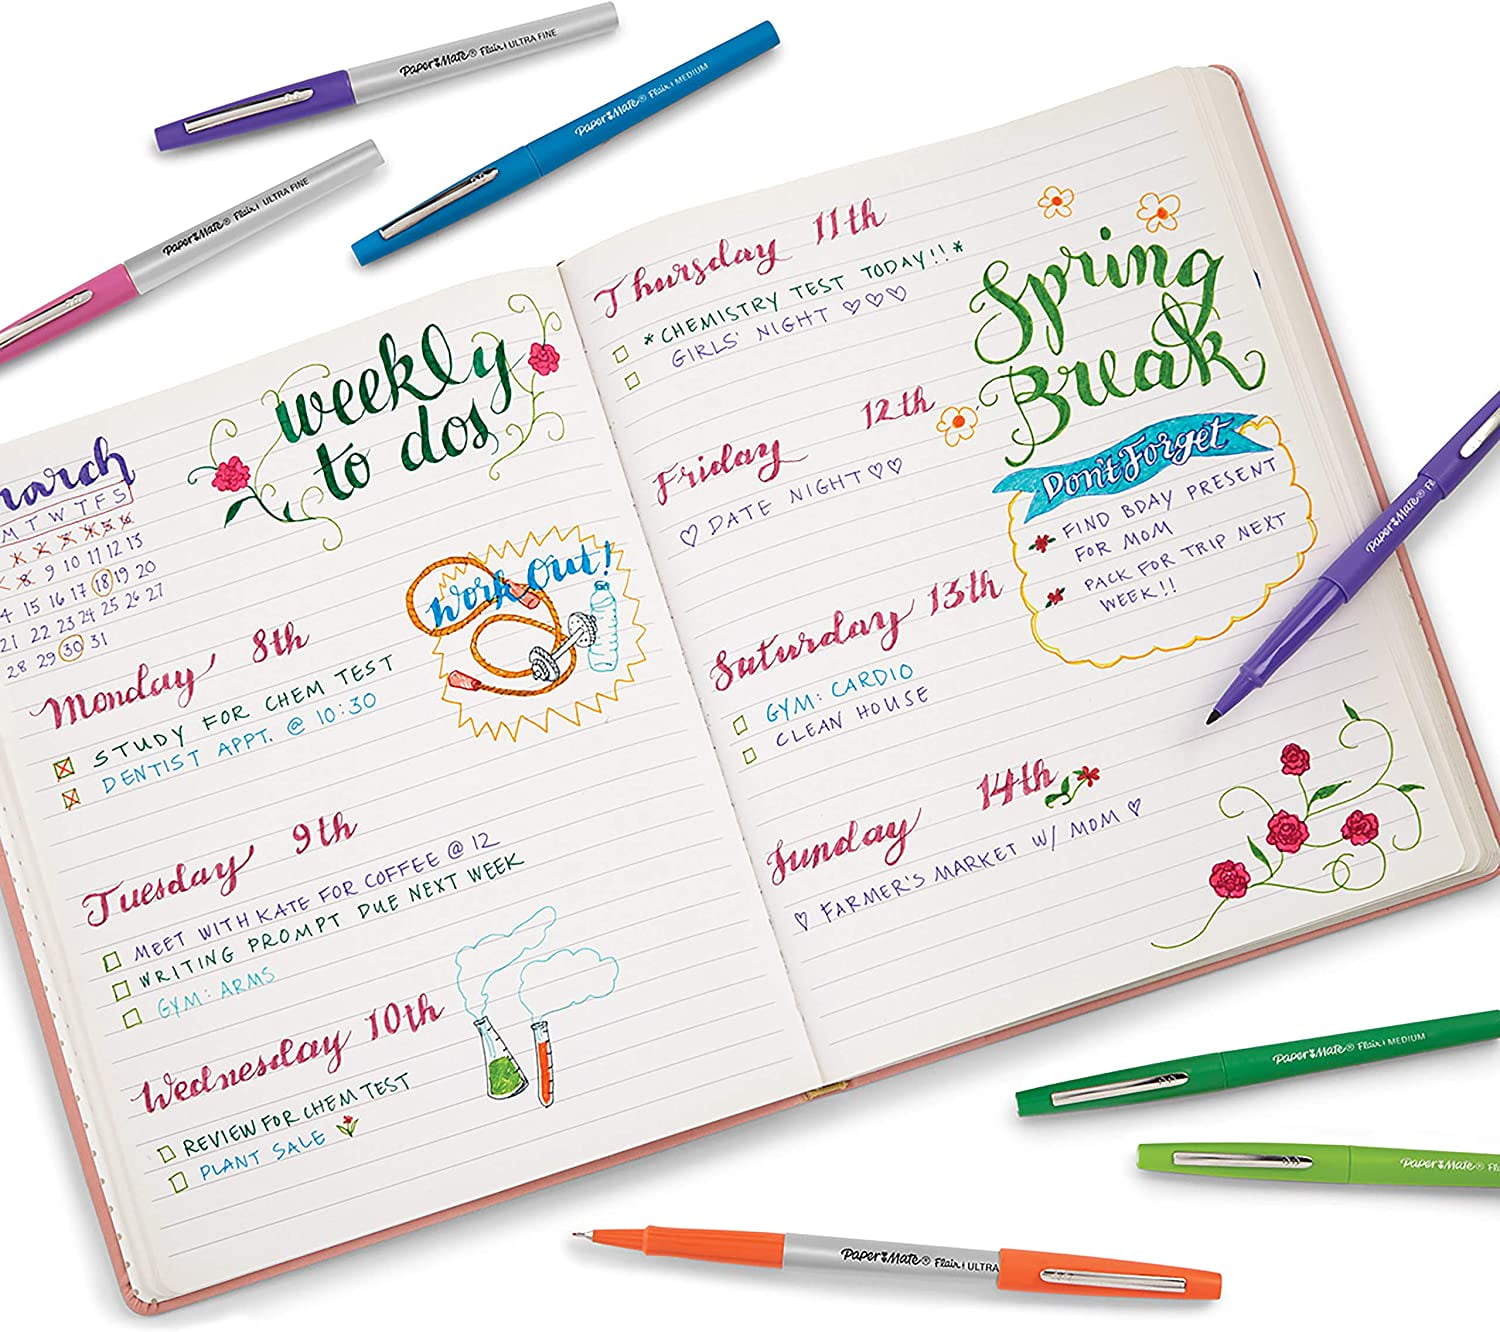 Paper Mate® Flair | ULTRA FINE
Paper Mate® Flair | MEDIUM
Paper Mate® Flair | ULTRA FINE
weekly
to dos
arch
M T W T F S
8 9 10 11 12 13
4 15 16 17 18 19 20
21 22 23 24 25 26 27
28 29 30 31
Work Out!
Monday 8th
STUDY FOR CHEM TEST
DENTIST APPT. @ 10:30
Tuesday 9th
MEET WITH KATE FOR COFFEE @ 12
WRITING PROMPT DUE NEXT WEEK
GYM: ARMS
Wednesday 10th
REVIEW FOR CHEM TEST
PLANT SALE
Thursday 11th
*CHEMISTRY TEST TODAY!!*
GIRLS' NIGHT ♡♡♡
Friday 12th
♡ DATE NIGHT ♡♡
Saturday 13th
GYM: CARDIO
CLEAN HOUSE
Sunday 14th
♡ FARMER'S MARKET W/ MOM ♡
Spring
Break
Don't Forget
FIND BDAY PRESENT
FOR MOM
PACK FOR TRIP NEXT
WEEK!!
Paper Mate®
Paper Mate® Flair | MEDIUM
Paper Mate® Flair
Paper Mate® Flair | ULTRA